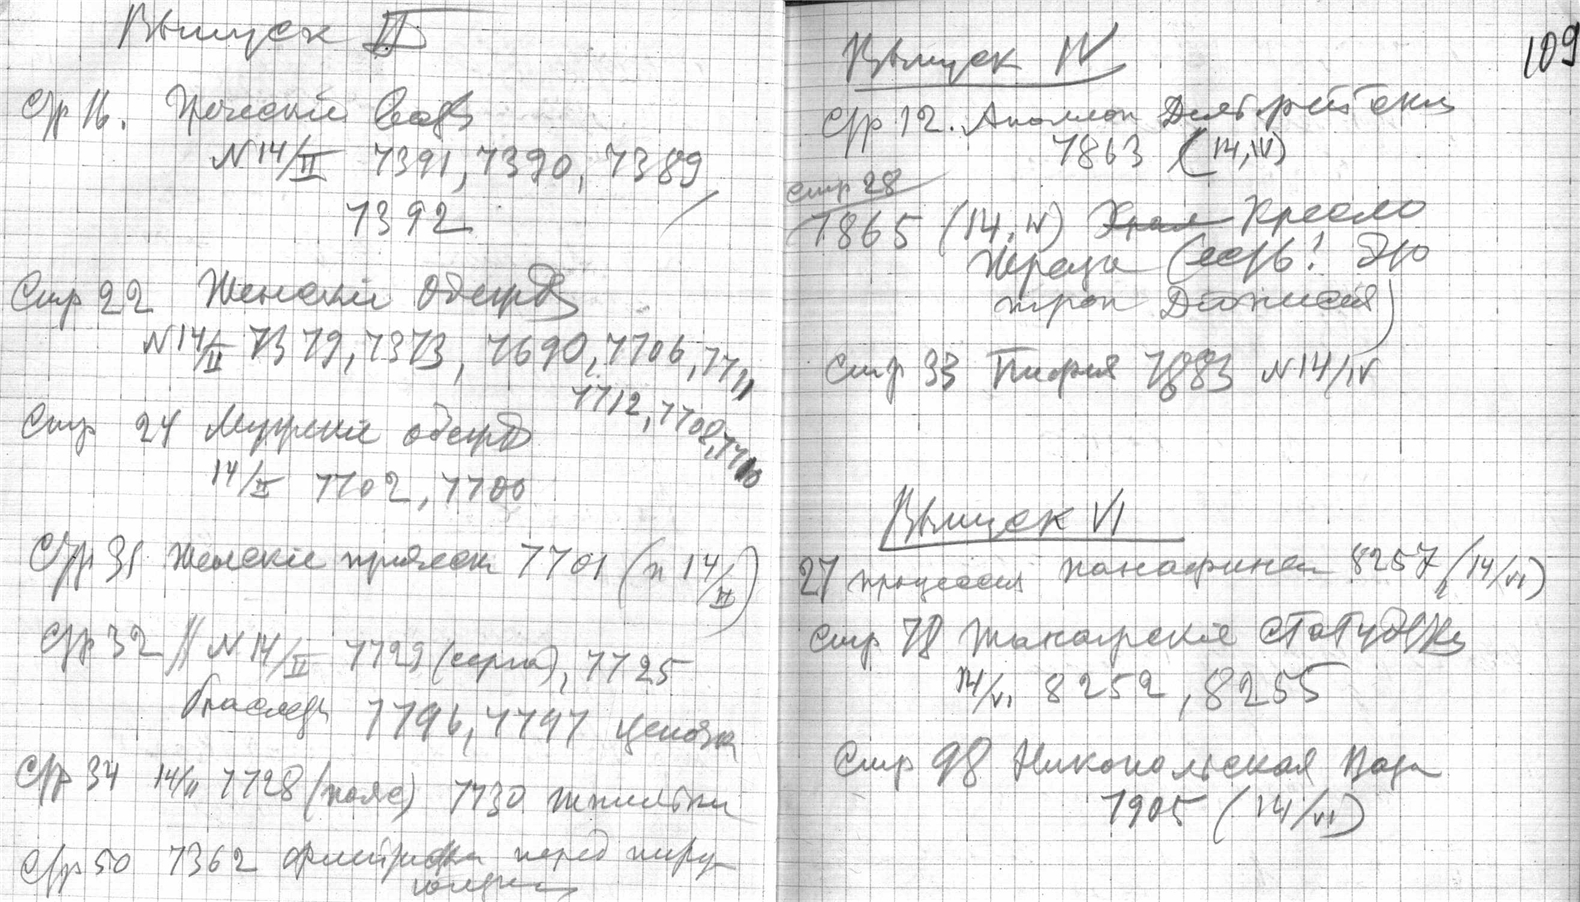 Выпуск II
Стр 16. Греческие
N 14/II 7391, 7390, 7389
7392
Стр 22 Женские одежды
N 14/II 7379, 7373, 7690, 7706, 7711
7712, 7708, 7710
Стр 24 Мужские одежды
14/II 7702, 7700
Стр 31 Женские прически 7701 (п 14/II)
Стр 32 N 14/II 7729 (серьга), 7725
браслеты 7796, 7797 цепочка
Стр 34 14/II 7728 (пояс) 7730 шпильки
Стр 50 7362 флейтистка перед пиру-
ющими
109
Выпуск IV
Стр 12. Аполлон
7863 (14, IV)
стр 28
7865 (14, IV) Храм Кресло
жреца (есть! Это
трон Диониса)
Стр 33 Пифия 7883 N 14/IV
Выпуск VI
27 процессия панафиней 8257 (14/VI)
Стр 78 Танагрские статуэтки
14/VI 8252, 8255
Стр 98 Никопольская Ваза
7905 (14/VI)